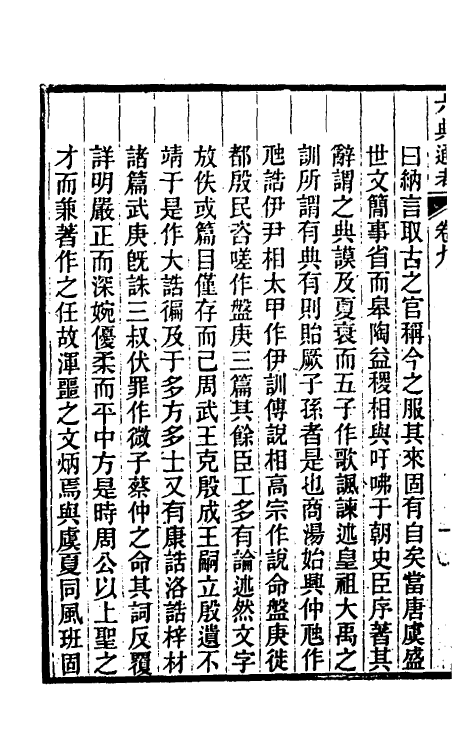 六典通考 卷九
曰納言取古之官稱今之服其來固有自矣當唐虞盛
世文簡事省而皋陶益稷相與吁咈于朝史臣序著其
辭謂之典謨及夏衰而五子作歌諷諫述皇祖大禹之
訓所謂有典有則貽厥子孫者是也商湯始興仲虺作
虺誥伊尹相太甲作伊訓傅說相高宗作說命盤庚徙
都殷民咨嗟作盤庚三篇其餘臣工多有論述然文字
放佚或篇目僅存而己周武王克殷成王嗣立殷遺不
靖于是作大誥徧及于多方多士又有康誥洛誥梓材
諸篇武庚旣誅三叔伏罪作微子蔡仲之命其詞反覆
詳明嚴正而深婉優柔而平中方是時周公以上聖之
才而兼著作之任故渾噩之文炳焉與虞夏同風班固